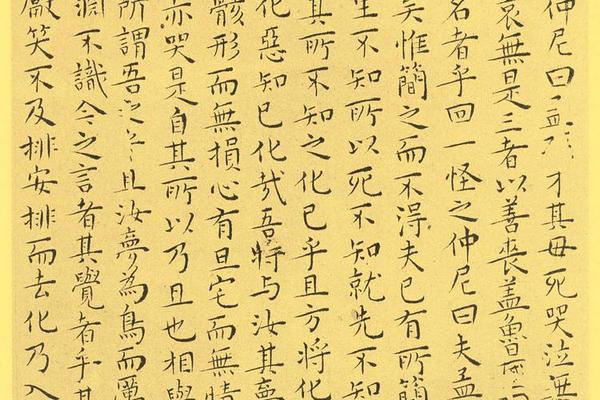 仲尼曰才其毋死哭泣無
哀無是三者以善喪盖魯
名者乎回一怪之仲尼曰夫孟
矣惟簡之而不得夫已有所簡
生不知所以死不知就先不知
其所不知之化已乎且方將化
化惡知已化哉吾将与汝其夢
骸形而無損心有旦宅而無情
亦哭是自其所以乃且也相與
所謂吾之乎且汝夢為鳥而厲
淵不識今之言者其覺者乎其
獻笑不及排安排而去化乃入